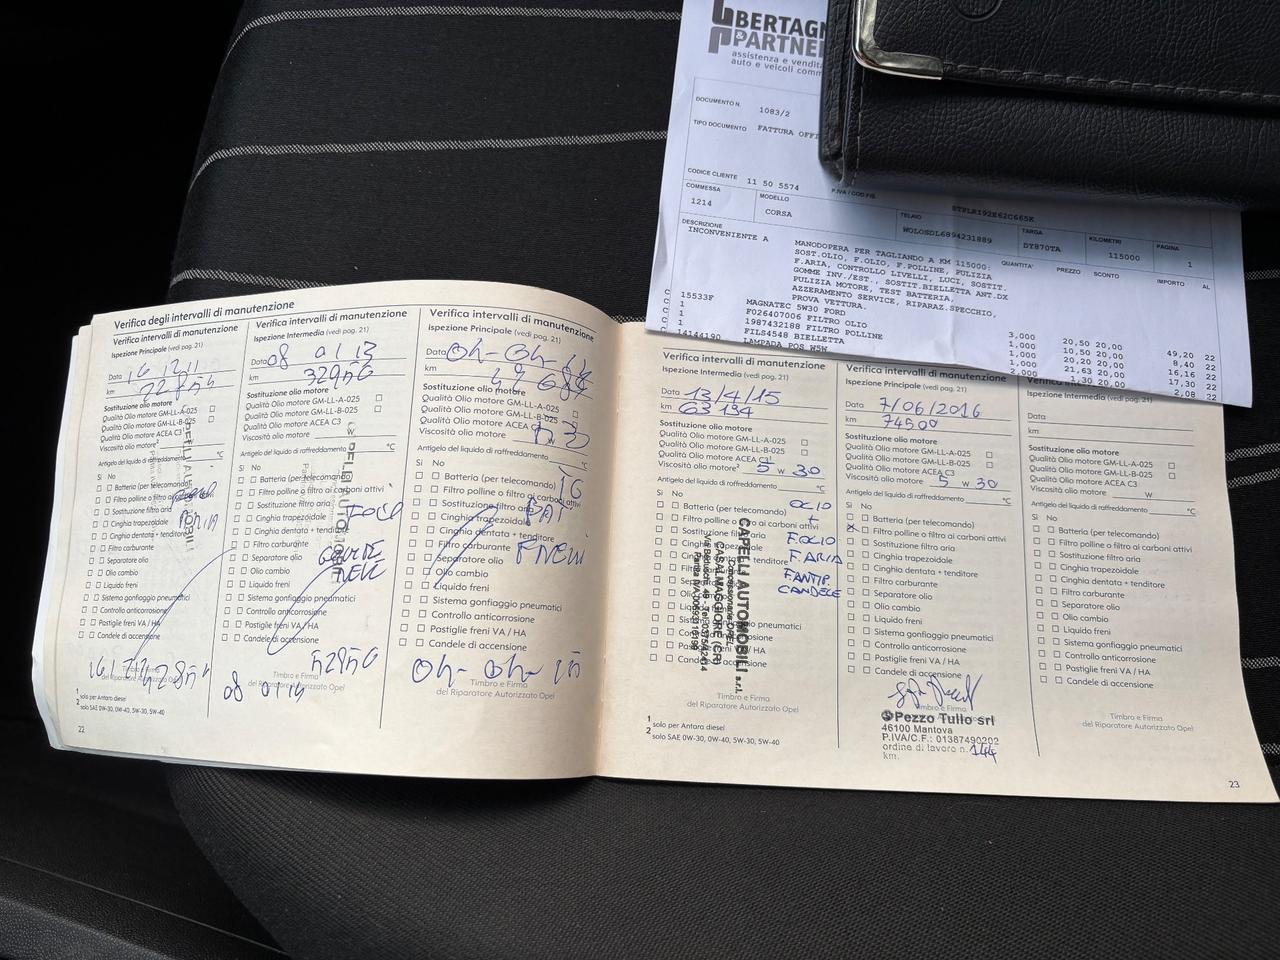 BERTAGN
& PARTNE
assistenza e vendita
auto e veicoli comm
DOCUMENTO N. 1083/2
TIPO DOCUMENTO FATTURA OFFI
CODICE CLIENTE 11 50 5574 P.IVA / COD.FIS.
COMMESSA MODELLO TELAIO TARGA KILOMETRI PAGINA
1214 CORSA W0L0SDL6894231889 DY870TA 115000 1
DESCRIZIONE QUANTITA' PREZZO SCONTO IMPORTO AL
INCONVENIENTE A MANODOPERA PER TAGLIANDO A KM 115000:
SOST.OLIO, F.OLIO, F.POLLINE, PULIZIA
F.ARIA, CONTROLLO LIVELLI, LUCI, SOSTIT.
GOMME INV./EST., SOSTIT.BIELLETTA ANT.DX
PULIZIA MOTORE, TEST BATTERIA,
AZZERAMENTO SERVICE, RIPARAZ.SPECCHIO,
PROVA VETTURA.
C 15533F MAGNATEC 5W30 FORD 3,000 20,50 20,00 49,20 22
C 1 F026407006 FILTRO OLIO 1,000 10,50 20,00 8,40 22
C 1 1987432188 FILTRO POLLINE 1,000 20,20 20,00 16,16 22
C 1 FILS4548 BIELLETTA 1,000 21,63 20,00 17,30 22
14144190 LAMPADA POS W5W 2,000 1,30 20,00 2,08 22
Verifica degli intervalli di manutenzione
Verifica intervalli di manutenzione
Ispezione Principale (vedi pag. 21)
Data 16 12 11
km
Sostituzione olio motore
Qualità Olio motore GM-LL-A-025
Qualità Olio motore GM-LL-B-025
Qualità Olio motore ACEA C3
Viscosità olio motore²
Antigelo del liquido di raffreddamento
Sì No
Batteria (per telecomando)
Filtro polline o filtro
Sostituzione filtro aria
Cinghia trapezoidale
Cinghia dentata + tenditore
Filtro carburante
Separatore olio
Olio cambio
Liquido freni
Sistema gonfiaggio pneumatici
Controllo anticorrosione
Pastiglie freni VA / HA
Candele di accensione
1 solo per Antara diesel
2 solo SAE 0W-30, 0W-40, 5W-30, 5W-40
22
Verifica intervalli di manutenzione
Ispezione Intermedia (vedi pag. 21)
Data 08 01 13
km 32956
Sostituzione olio motore
Qualità Olio motore GM-LL-A-025
Qualità Olio motore GM-LL-B-025
Qualità Olio motore ACEA C3
Viscosità olio motore W
Antigelo del liquido di raffreddamento °C
Sì No
Batteria (per telecomando)
Filtro polline o filtro ai carboni attivi
Sostituzione filtro aria
Cinghia trapezoidale
Cinghia dentata + tenditore
Filtro carburante
Separatore olio
Olio cambio
Liquido freni
Sistema gonfiaggio pneumatici
Controllo anticorrosione
Pastiglie freni VA / HA
Candele di accensione
08 01 14
Timbro e Firma
del Riparatore Autorizzato Opel
Verifica intervalli di manutenzione
Ispezione Principale (vedi pag. 21)
Data
km
Sostituzione olio motore
Qualità Olio motore GM-LL-A-025
Qualità Olio motore GM-LL-B-025
Qualità Olio motore ACEA
Viscosità olio motore
Antigelo del liquido di raffreddamento °C
Sì No
Batteria (per telecomando)
Filtro polline o filtro ai carboni attivi
Sostituzione filtro aria
Cinghia trapezoidale
Cinghia dentata + tenditore
Filtro carburante
Separatore olio
Olio cambio
Liquido freni
Sistema gonfiaggio pneumatici
Controllo anticorrosione
Pastiglie freni VA / HA
Candele di accensione
Timbro e Firma
del Riparatore Autorizzato Opel
Verifica intervalli di manutenzione
Ispezione Intermedia (vedi pag. 21)
Data 13/4/15
km 63 194
Sostituzione olio motore
Qualità Olio motore GM-LL-A-025
Qualità Olio motore GM-LL-B-025
Qualità Olio motore ACEA C3
Viscosità olio motore² 5 W 30
Antigelo del liquido di raffreddamento °C
Sì No
OLIO
+
F.OLIO
F. ARIA
F.ANTIP.
CANDELE
Batteria (per telecomando)
Filtro polline o filtro ai carboni attivi
CAPELLI AUTOMOBILI s.r.l.
Concessionaria OPEL
CASALMAGGIORE (CR)
Timbro e Firma
del Riparatore Autorizzato Opel
1 solo per Antara diesel
2 solo SAE 0W-30, 0W-40, 5W-30, 5W-40
Verifica intervalli di manutenzione
Ispezione Principale (vedi pag. 21)
Data 7/06/2016
km 74500
Sostituzione olio motore
Qualità Olio motore GM-LL-A-025
Qualità Olio motore GM-LL-B-025
Qualità Olio motore ACEA C3
Viscosità olio motore 5 W 30
Antigelo del liquido di raffreddamento °C
Sì No
Batteria (per telecomando)
Filtro polline o filtro ai carboni attivi
Sostituzione filtro aria
Cinghia trapezoidale
Cinghia dentata + tenditore
Filtro carburante
Separatore olio
Olio cambio
Liquido freni
Sistema gonfiaggio pneumatici
Controllo anticorrosione
Pastiglie freni VA / HA
Candele di accensione
Timbro e Firma
Pezzo Tullo srl
46100 Mantova
P.IVA/C.F.: 01387490202
ordine di lavoro n. 144
km.
Ispezione Intermedia (vedi pag. 21)
Data
km
Sostituzione olio motore
Qualità Olio motore GM-LL-A-025
Qualità Olio motore GM-LL-B-025
Qualità Olio motore ACEA C3
Viscosità olio motore W
Antigelo del liquido di raffreddamento °C
Sì No
Batteria (per telecomando)
Filtro polline o filtro ai carboni attivi
Sostituzione filtro aria
Cinghia trapezoidale
Cinghia dentata + tenditore
Filtro carburante
Separatore olio
Olio cambio
Liquido freni
Sistema gonfiaggio pneumatici
Controllo anticorrosione
Pastiglie freni VA / HA
Candele di accensione
Timbro e Firma
del Riparatore Autorizzato Opel
23